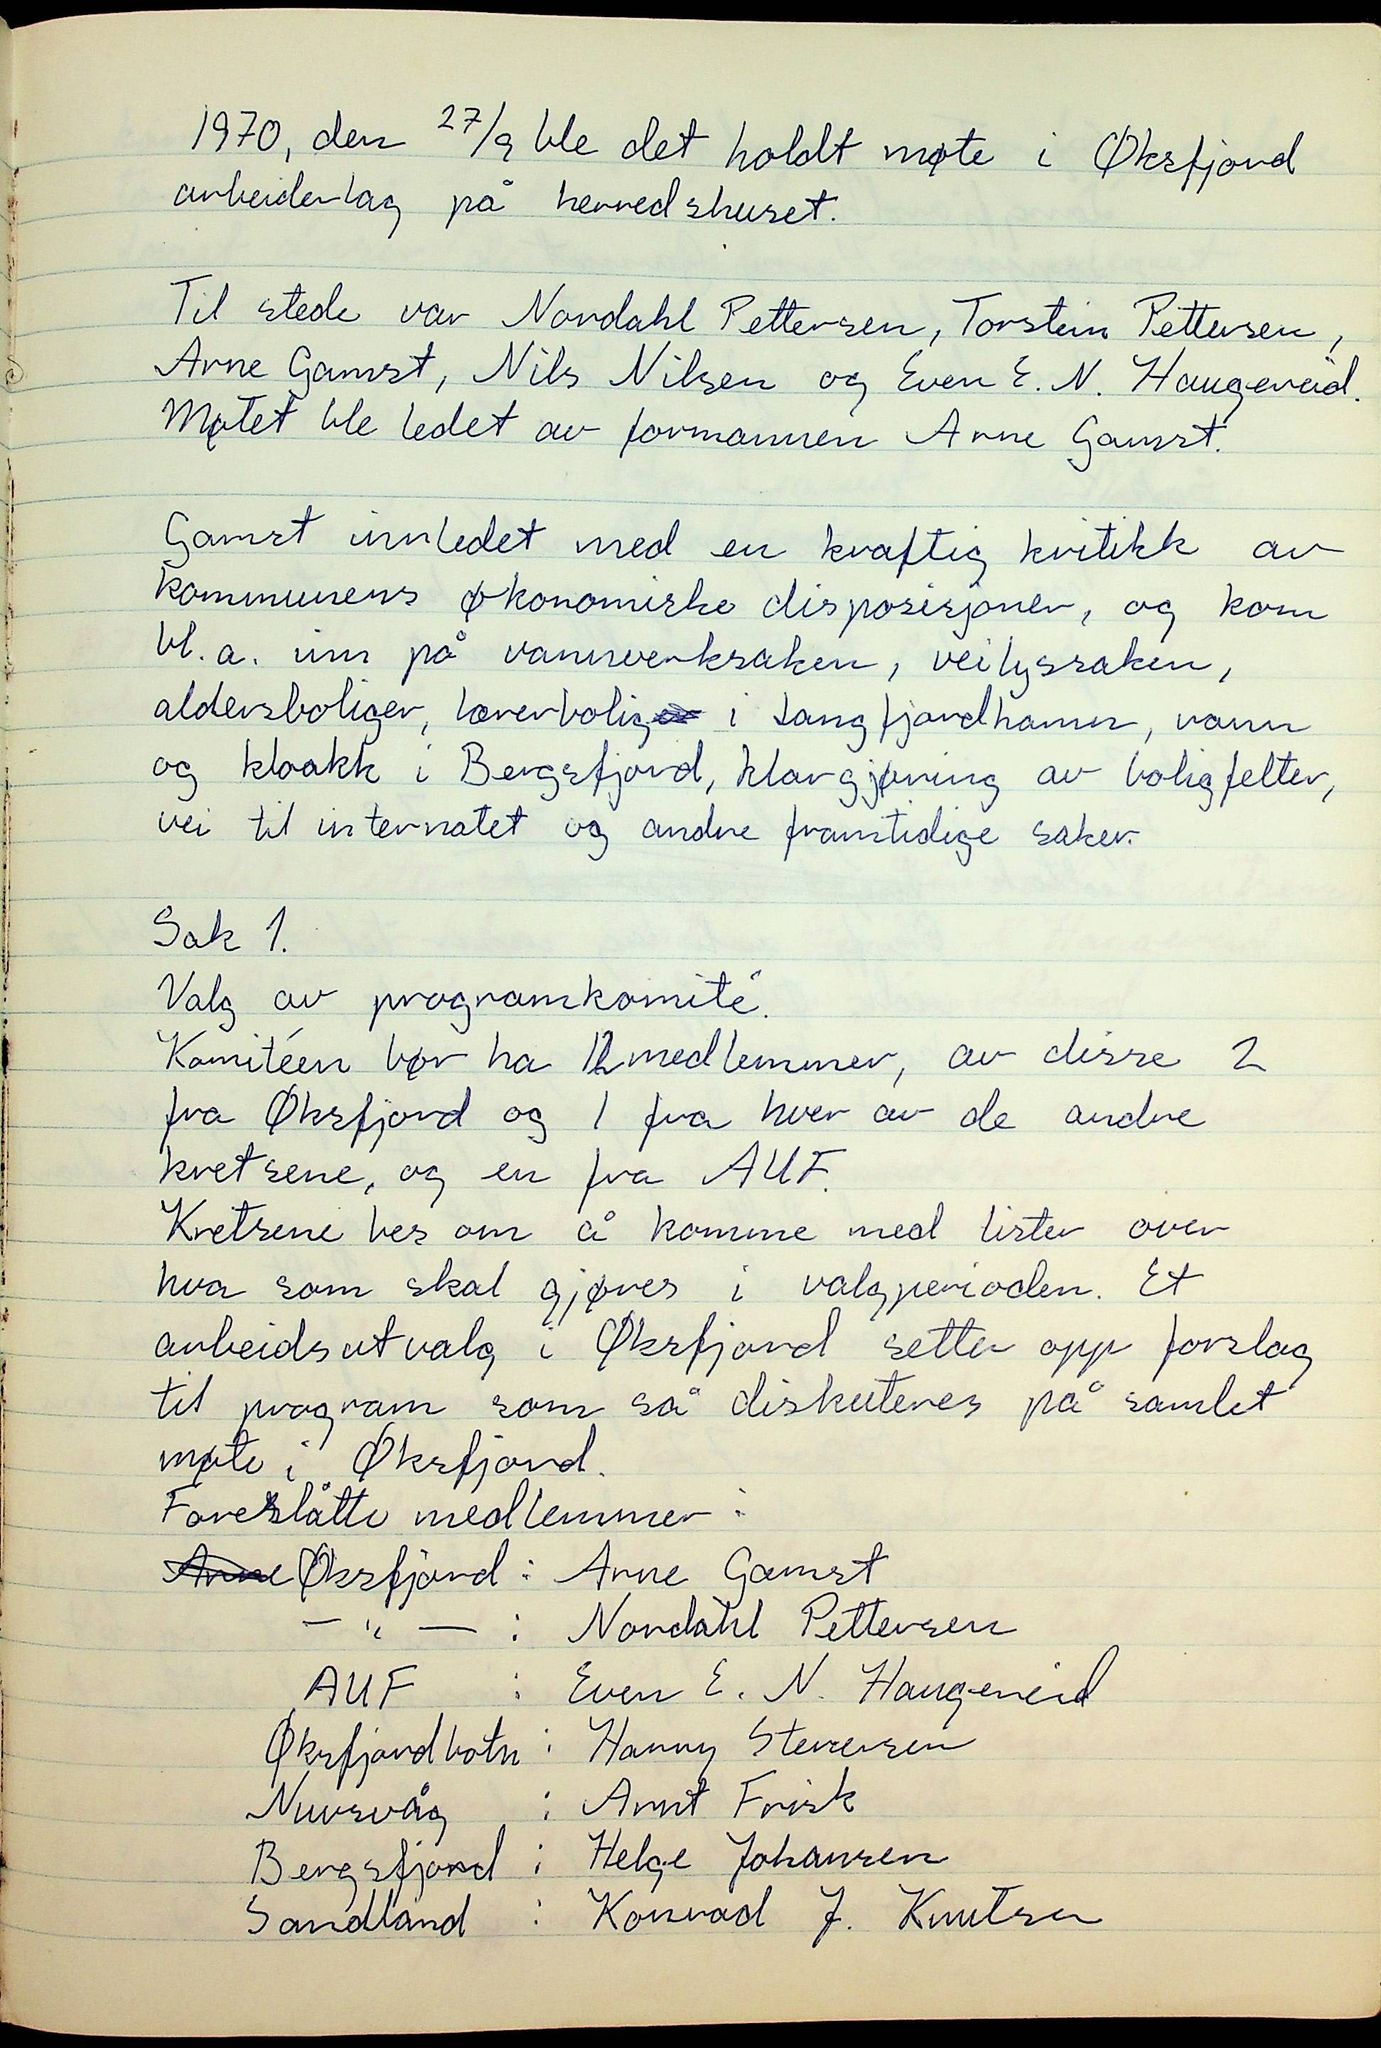 1970, den 27/9 ble det holdt møte i Øksfjord
arbeiderlag på herredshuset.
Til stede var Nordahl Pettersen, Torstein Pettersen,
Arne Gamst, Nils Nilsen og Even E. N. Haugeneid.
Møtet ble ledet av formannen Arne Gamst.
Gamst innledet med en kraftig kritikk av
kommunens økonomiske disposisjoner, og kom
bl. a. inn på vannverksaken, veilyssaken,
aldersboliger, lærerbolig i Langfjordhamn, vann
og kloakk i Bergsfjord, klargjøring av boligfelter,
vei til internatet og andre framtidige saker.
Sak 1.
Valg av programkomité.
Komitéen bør ha 12 medlemmer, av disse 2
fra Øksfjord og 1 fra hver av de andre
kretsene, og en fra AUF.
Kretsene bes om å komme med lister over
hva som skal gjøres i valgperioden. Et
arbeidsutvalg i Øksfjord setter opp forslag
til program som så diskuteres på samlet
møte i Øksfjord.
Foreslåtte medlemmer :
Arne Øksfjord : Arne Gamst
— " — : Nordahl Pettersen
AUF : Even E. N. Haugeneid
Øksfjordbotn : Hanny Stevensen
Nuvsvåg : Arnt Frisk
Bergsfjord : Helge Johansen
Sandland : Konrad J. Knutsen